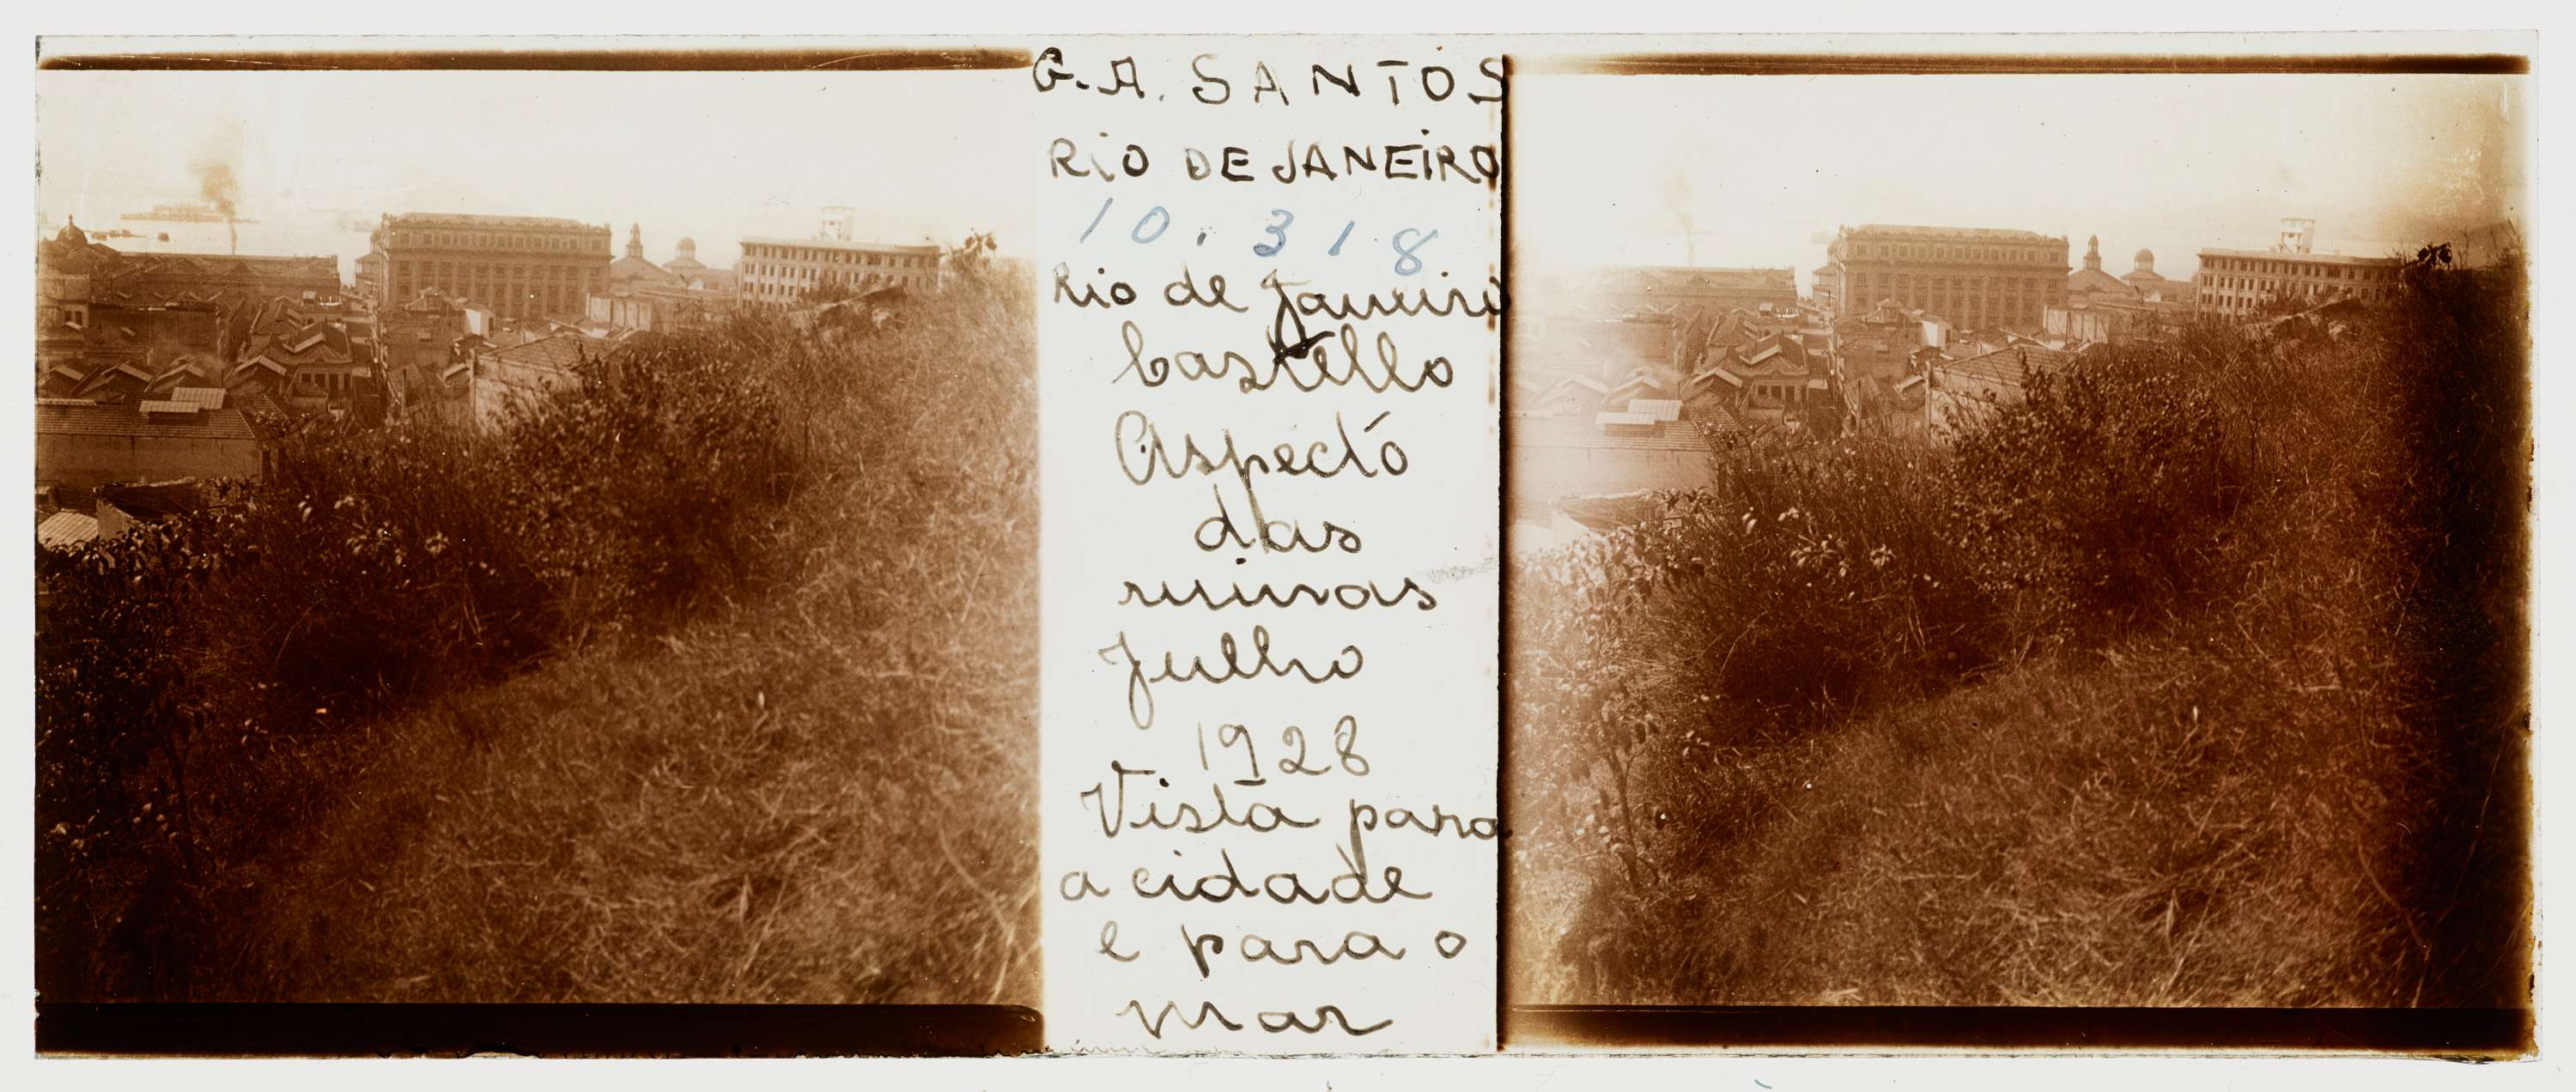 G. A. SANTOS
RIO DE JANEIRO
10.318
Rio de Janeiro
Castello
Aspecto
das
ruinas
Julho
1928
Vista para
a cidade
e para o
mar